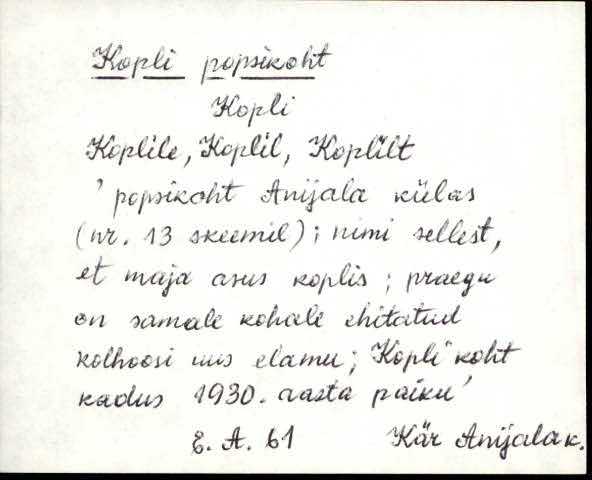 Kopli popsikoht
Kopli
Koplile, Koplil, Koplilt
' popsikoht Anijala külas
(nr. 13 skeemil); nimi sellest,
et maja asus koplis; praegu
on samale kohale ehitatud
kolhoosi uus elamu; Kopli koht
kadus 1930. aasta paiku'
E. A. 61 Kär Anijala k.